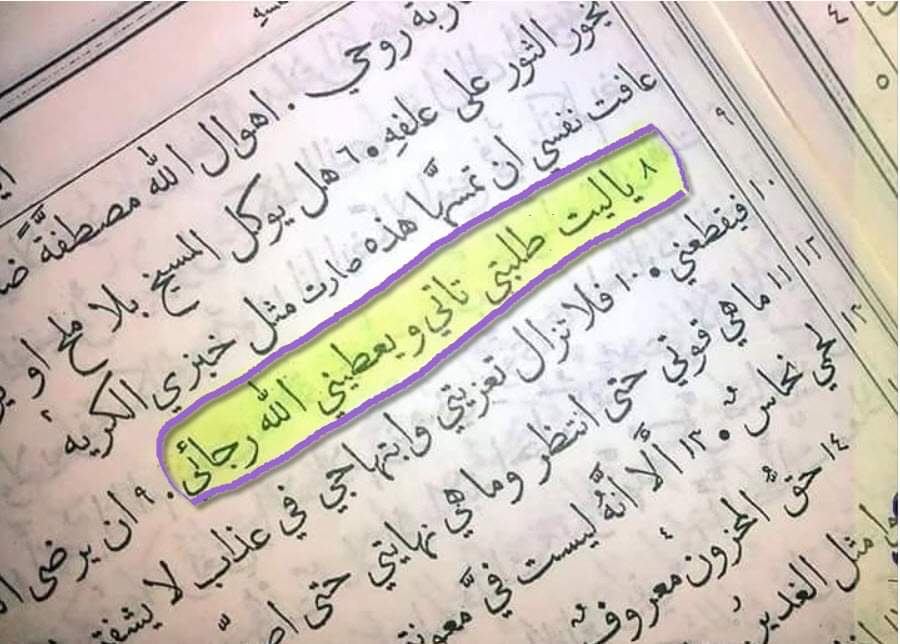 اربة روحي ۰ اهوال الله مصطفّة
يخور الثور على علفهِ ۰ ٦ هل يوكل المسيخ بلا ملح او
عافت نفسي ان تمسَّها هذه صارت مثل خبزي الكريه
٨ ياليت طلبتي تاتي ويعطيني الله رجائي ۰ ٩ ان يرضى
فيقطعني ۰ ١٠ فلا تزال تعزيتي وابتهاجي في عذاب لا
١١ ما هي قوتي حتى انتظر وما هي نهايتي حتى
لحمي نحاس ۰ ١٣ أَلَا انَّهُ ليست فيَّ معونتي
١٤ حقُّ المحزون معروف
مثل الغدير
٤
٥
٩
١٠
١١ ١٢
١٣